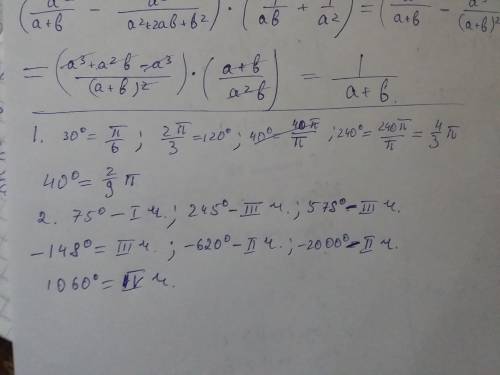 (a²/(a+в) − a³/(a²+2aв+в²)) · (1/aв + 1/a²) = (a²/(a+в) − a³/(a+в)²
= ((a³+a²в−a³)/(a+в)²) · ((a+в)/(a²в)) = 1/(a+в).
1. 30° = π/6 ; 2π/3 = 120° ; 40° = 40π/π ; 240° = 240π/π = 4/3 π
40° = 2/9 π
2. 75° – I ч. ; 245° – III ч. ; 578° – III ч.
−148° = III ч. ; −620° – II ч. ; −2000° – II ч.
1060° = IV ч.